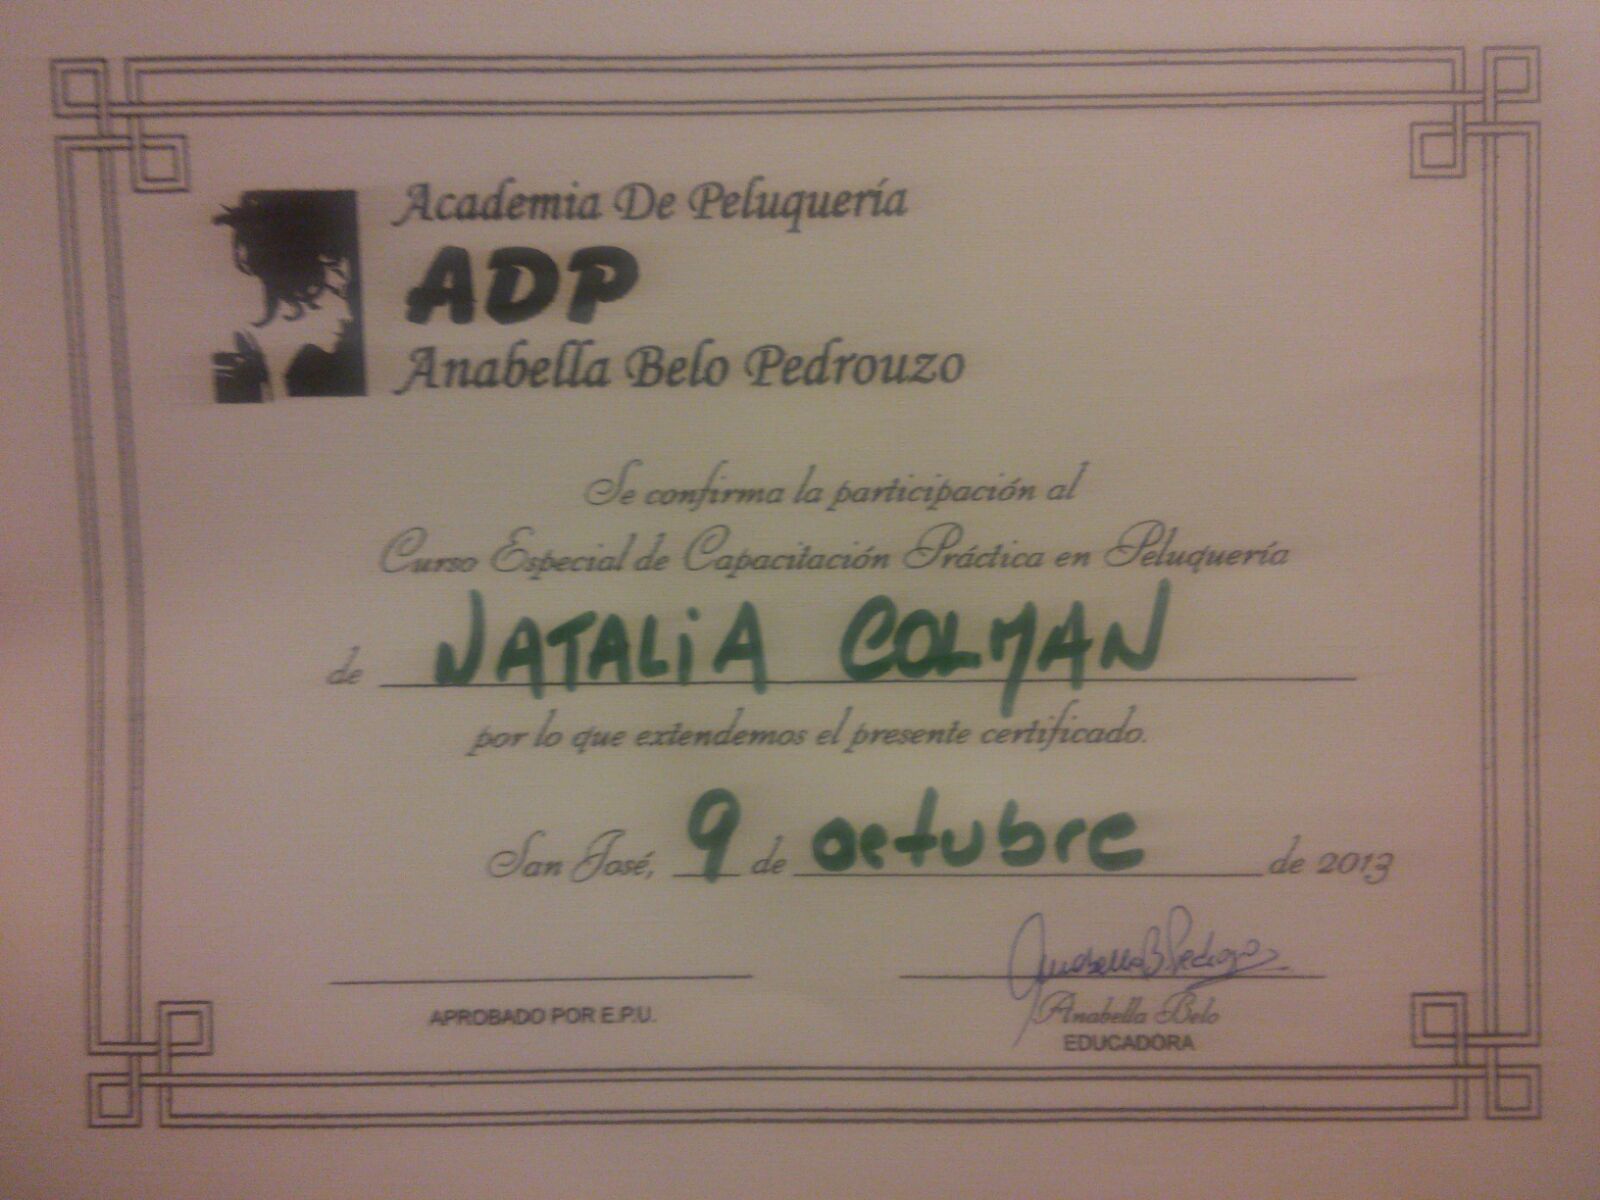 Academia De Peluquería
ADP
Anabella Belo Pedrouzo
Se confirma la participación al
Curso Especial de Capacitación Práctica en Peluquería
de NATALiA COLMAN
por lo que extendemos el presente certificado.
San José, 9 de octubre de 2013
Anabella B Pedrouzo
APROBADO POR E.P.U.
Anabella Belo
EDUCADORA